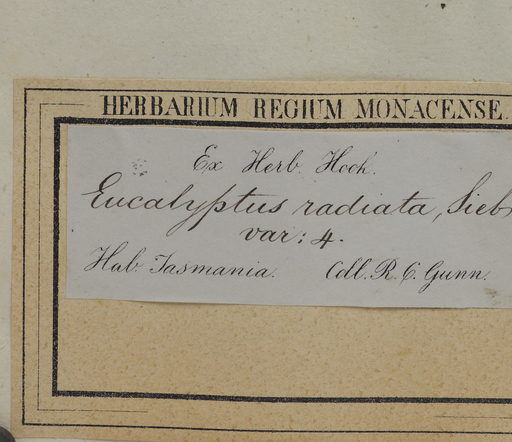 HERBARIUM REGIUM MONACENSE.
Ex Herb. Hook.
Eucalyptus radiata, Sieb
var: 4.
Hab. Tasmania. Coll. R. C. Gunn.